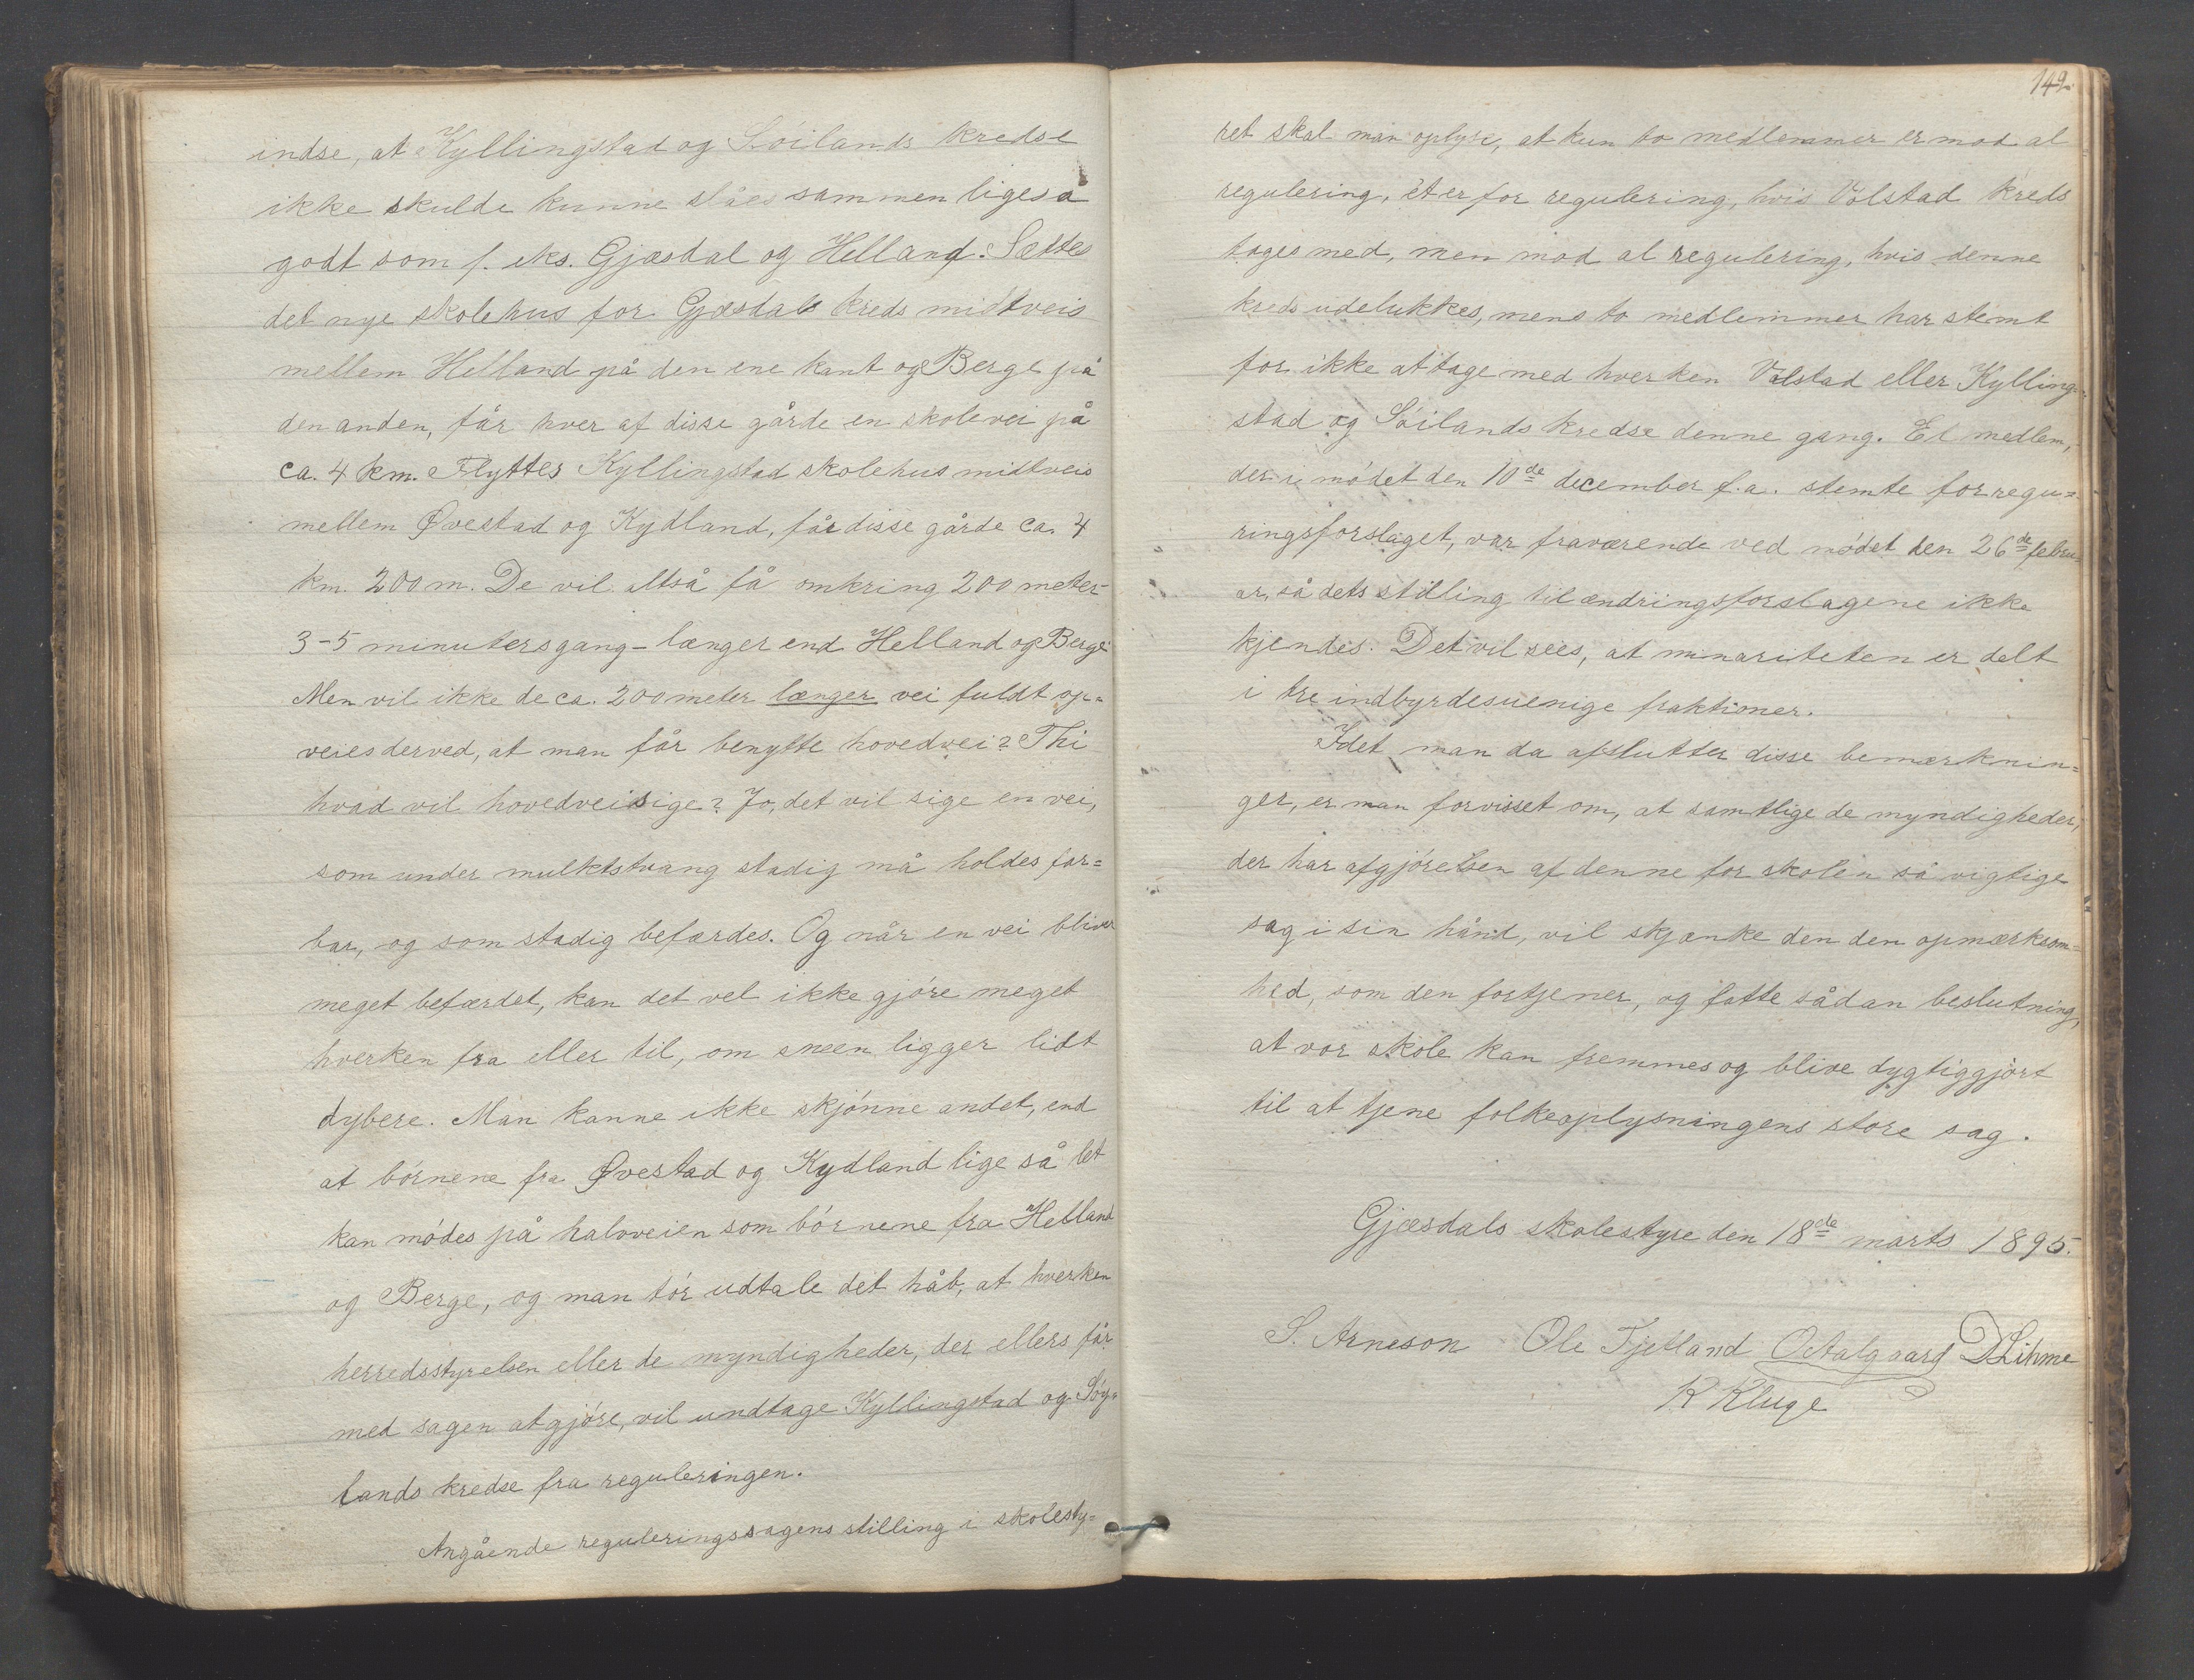 indse, at Kyllingstad og Söilands kredse
ikke skulde kunne slåes sammen ligeså
godt som f. eks. Gjæsdal og Helland. Sættes
det nye skolehus for Gjæsdals kreds midtveis
mellem Helland på den ene kant og Berge på
den anden, får hver af disse gårde en skolevei på
ca. 4 km. Flyttes Kyllingstad skolehus midtveis
mellem Øvestad og Kydland, får disse gårde ca. 4
km. 200 m. De vil altså få omkring 200 meter-
3-5 minutersgang - længer end Helland og Berge.
Men vil ikke de ca. 200 meter længer vei fuldt op=
veies derved, at man får benytte hovedvei? Thi
hvad vil hovedvei sige? Jo, det vil sige en vei,
som under mulktstvang stadig må holdes far=
bar, og som stadig befærdes. Og når en vei bliver
meget befærdet, kan det vel ikke gjöre meget
hverken fra eller til, om sneen ligger lidt
dybere. Man kanne ikke skjönne andet, end
at börnene fra Øvestad og Kydland lige så let
kan mödes på halvveien som börnene fra Helland
og Berge, og man tör udtale det håb, at hverken
herredsstyrelsen eller de myndigheder, der ellers får
med sagen at gjöre, vil undtage Kyllingstad og Söy=
lands kredse fra reguleringen.
Angående reguleringssagens stilling i skolesty=
149.
ret skal man oplyse, at kun to medlemmer er mod al
regulering, ét er for regulering, hvis Ólstad kreds
tages med, men mod al regulering, hvis denne
kreds udelukkes, mens to medlemmer har stemt
for ikke at tage med hverken Ólstad eller Kylling=
stad og Söilands kredse denne gang. Et medlem,
der i mödet den 10de december f.a. stemte for regu=
ringsforslaget, var fraværende ved mödet den 26de febru=
ar, så dets stilling til ændringsforslagene ikke
kjendes. Det vil sees, at minoriteten er delt
i tre indbyrdes uenige fraktioner.
Idet man da afslutter disse bemærknin=
ger, er man forvisset om, at samtlige de myndigheder,
der har afgjörelsen af denne for skolen så vigtige
sag i sin hånd, vil skjænke den den opmærksom=
hed, som den fortjener, og fatte sådan beslutning,
at vor skole kan fremmes og blive dygtiggjort
til at tjene folkeoplysningens store sag.
Gjæsdals skolestyre den 18de marts 1895.
S. Arneson Ole Fjetland O Aalgaard D Lihme
R Kluge